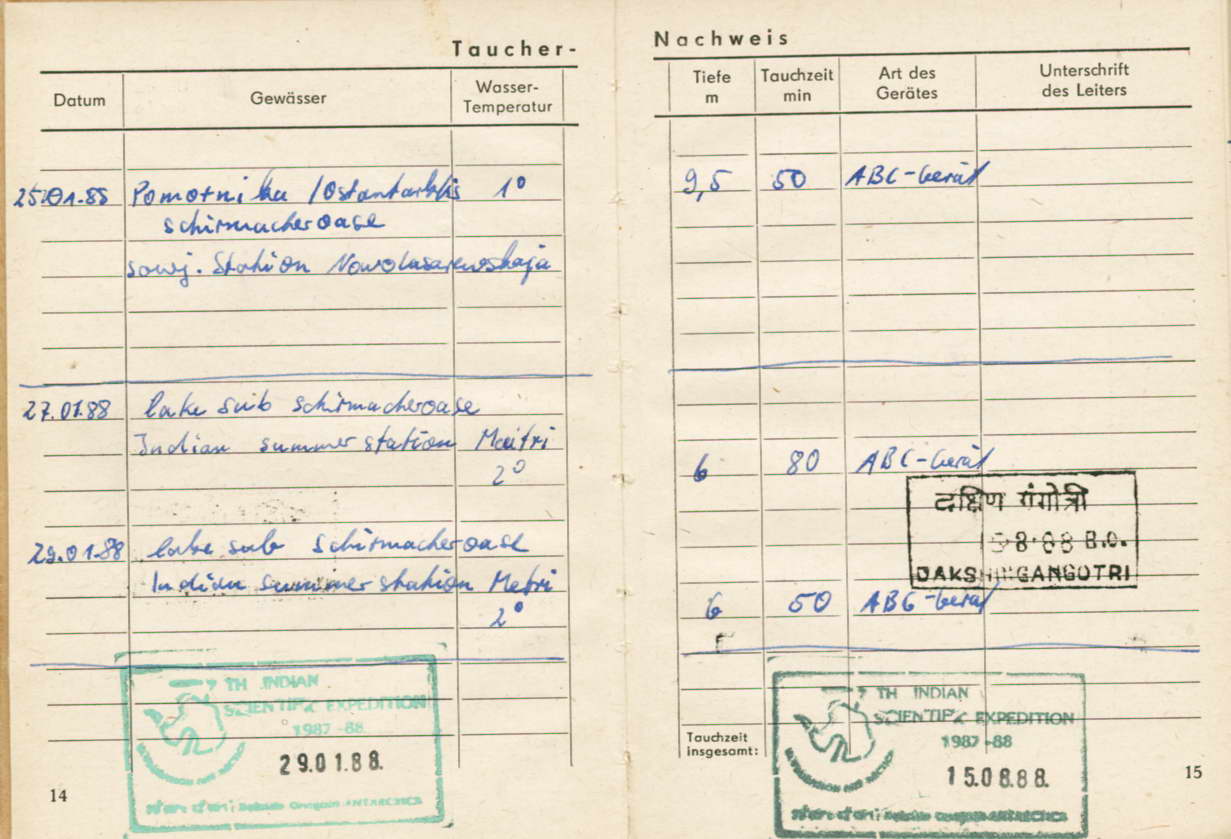 Taucher-
Datum
Gewässer
Wasser-
Temperatur
25.01.88 Pomorni ka / Ostantarktis 1°
Schirmacheroase
sowj. Station Nowolasarewskaja
27.01.88 lake sub Schirmacheroase
Indian summer station Maitri
2°
29.01.88 lake sub Schirmacheroase
Indian summer station Metri
2°
7 TH INDIAN
SCIENTIFIC EXPEDITION
1987-88
29.01.88.
ANTARCTICA
14
Nachweis
Tiefe
m
Tauchzeit
min
Art des
Gerätes
Unterschrift
des Leiters
9,5 50 ABC-Gerät
6 80 ABC-Gerät
दक्षिण गंगोत्री
8.88 B.O.
DAKSHIN GANGOTRI
6 50 ABC-Gerät
Tauchzeit
insgesamt:
7 TH INDIAN
SCIENTIFIC EXPEDITION
1987-88
15.08.88.
ANTARCTICA
15